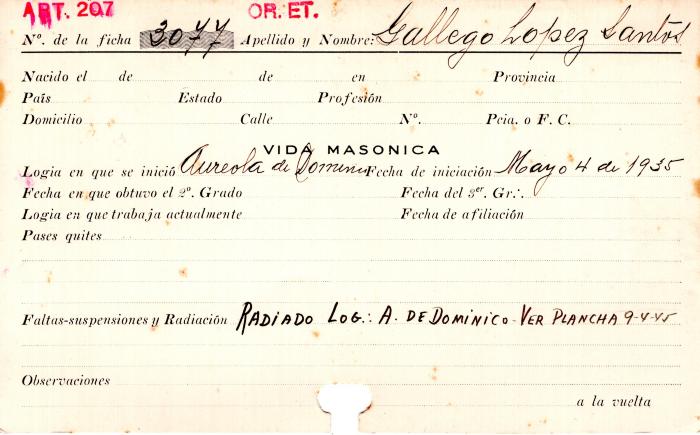 ART. 207 OR. ET.
Nº. de la ficha 3077 Apellido y Nombre: Gallego Lopez Santos
Nacido el de de en Provincia
País Estado Profesión
Domicilio Calle Nº. Pcia. o F. C.
VIDA MASONICA
Logia en que se inició Aureola de Dominico Fecha de iniciación Mayo 4 de 1935
Fecha en que obtuvo el 2º. Grado Fecha del 3er. Gr∴.
Logia en que trabaja actualmente Fecha de afiliación
Pases quites
Faltas-suspensiones y Radiación RADIADO LOG.: A. DE DOMINICO - VER PLANCHA 9-4-45
Observaciones
a la vuelta